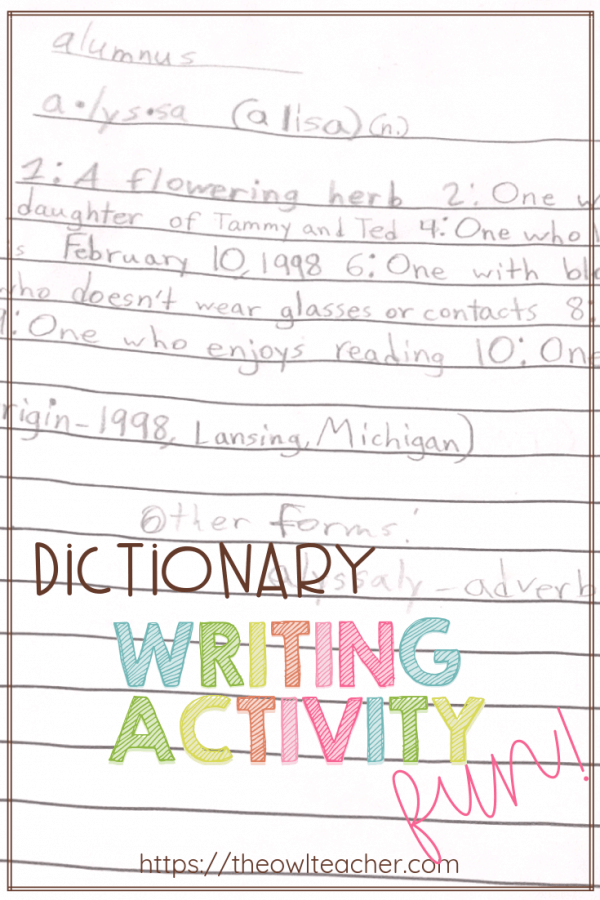 alumnus
a•lys•sa (alisa) (n.)
1: A flowering herb 2: One
daughter of Tammy and Ted 4: One who
February 10, 1998 6: One with
who doesn't wear glasses or contacts 8:
9: One who enjoys reading 10: One
rigin-1998, Lansing, Michigan)
Other forms:
alyssaly - adverb
DICTIONARY
WRITING
ACTIVITY
fun!
https://theowlteacher.com